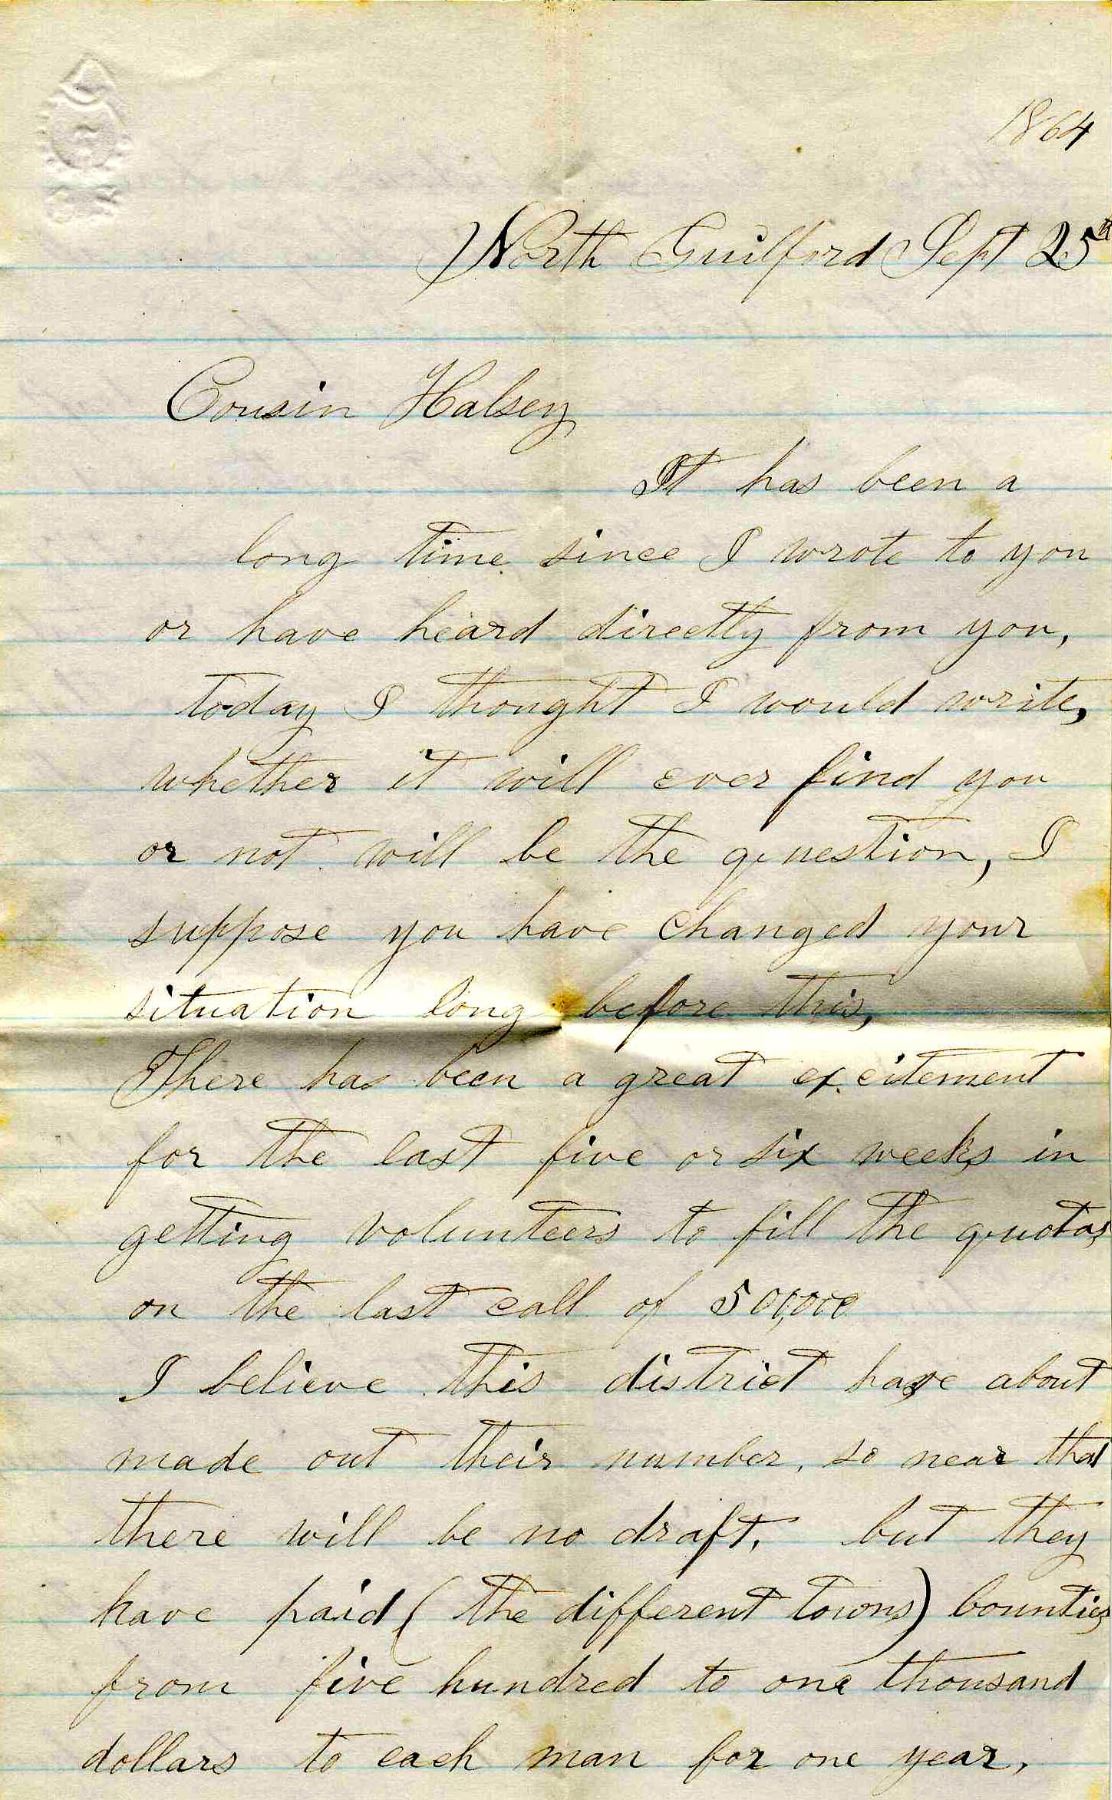 1864
North Guilford Sept 25th
Cousin Halsey
It has been a
long time since I wrote to you
or have heard directly from you,
today I thought I would write,
whether it will ever find you
or not will be the question, I
suppose you have changed your
situation long before this,
There has been a great excitement
for the last five or six weeks in
getting volunteers to fill the quotas
on the last call of 500,000
I believe this district have about
made out their number, so near that
there will be no draft, but they
have paid ( the different towns) bounties
from five hundred to one thousand
dollars to each man for one year,